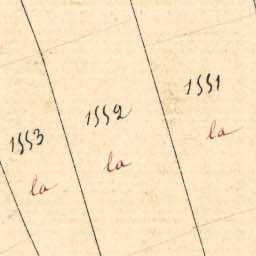 1553
la
1552
la
1551
la